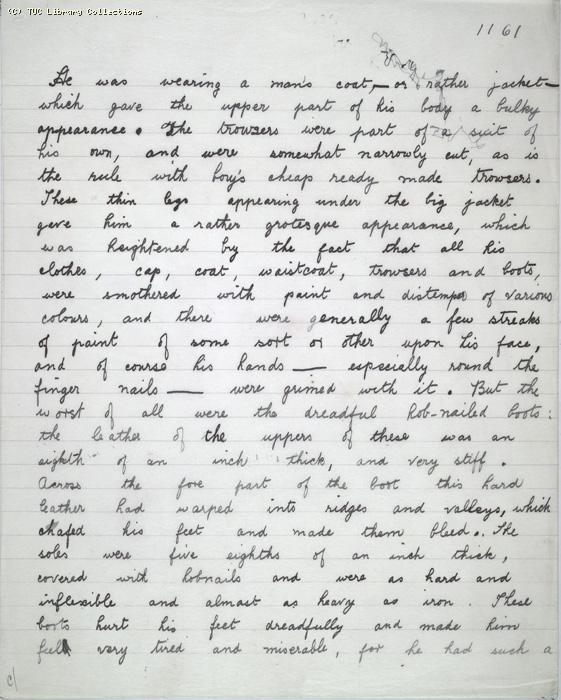 (C) TUC Library Collections
1161
He was wearing a man's coat, — or rather jacket —
which gave the upper part of his body a bulky
appearance. The trowsers were part of a suit of
his own, and were somewhat narrowly cut, as is
the rule with boy's cheap ready made trowsers.
These thin legs appearing under the big jacket
gave him a rather grotesque appearance, which
was heightened by the fact that all his
clothes, cap, coat, waistcoat, trowsers and boots,
were smothered with paint and distemper of various
colours, and there were generally a few streaks
of paint of some sort or other upon his face,
and of course his hands — especially round the
finger nails — were grimed with it. But the
worst of all were the dreadful hob-nailed boots:
the leather of the uppers of these was an
eighth of an inch thick, and very stiff.
Across the fore part of the boot this hard
leather had warped into ridges and valleys, which
chafed his feet and made them bleed. The
soles were five eighths of an inch thick,
covered with hobnails and were as hard and
inflexible and almost as heavy as iron. These
boots hurt his feet dreadfully and made him
feel very tired and miserable, for he had such a
c/